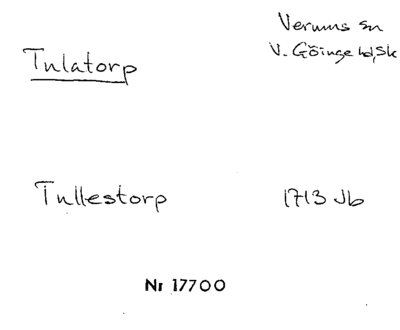 Tulatorp
Verums sn
V. Göinge hd, Sk
Tullestorp
1713 Jb
Nr 17700